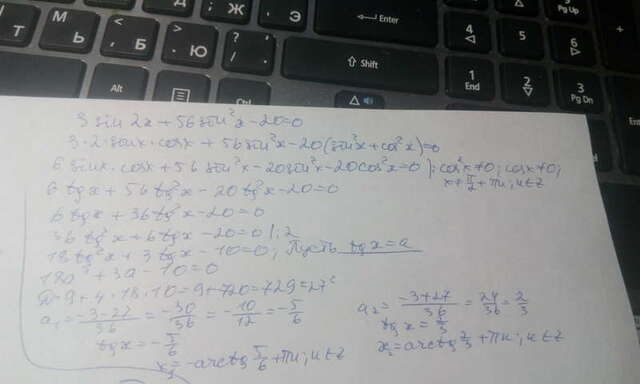 Enter
Shift
Alt
Ctrl
Pg Up
4
5
6
1
End
2
3
Pg Dn
Т
М
Ь
Б
Ж
Э
Ю
3 sin 2x + 56 sin²x - 20 = 0
3·2·sinx·cosx + 56 sin²x - 20(sin²x + cos²x) = 0
6 sinx·cosx + 56 sin²x - 20 sin²x - 20cos²x = 0 |: cos²x ≠ 0; cosx ≠ 0;
x ≠ π/2 + πn; n∈Z
6 tgx + 56 tg²x - 20 tg²x - 20 = 0
6 tgx + 36 tg²x - 20 = 0
36 tg²x + 6 tgx - 20 = 0 |:2
18 tg²x + 3 tgx - 10 = 0; Пусть tgx = a
18a² + 3a - 10 = 0
D = 9 + 4·18·10 = 9 + 720 = 729 = 27²
a₁ = (-3-27)/36 = -30/36 = -10/12 = -5/6
tgx = -5/6
x₁ = -arctg 5/6 + πn; n∈Z
a₂ = (-3+27)/36 = 24/36 = 2/3
tgx = 2/3
x₂ = arctg 2/3 + πn; n∈Z